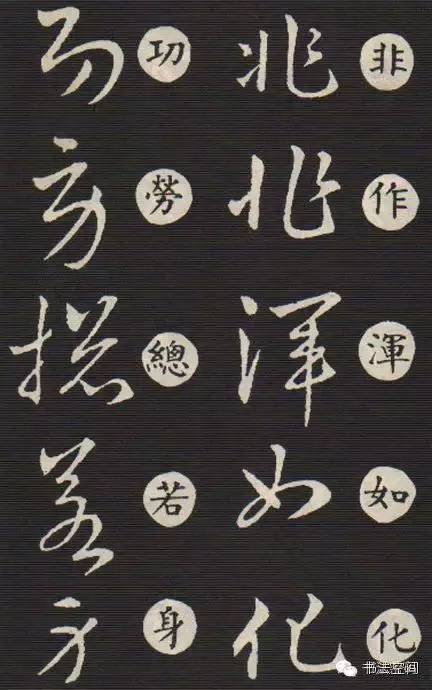 非作渾如化
功勞總若身
书法空间